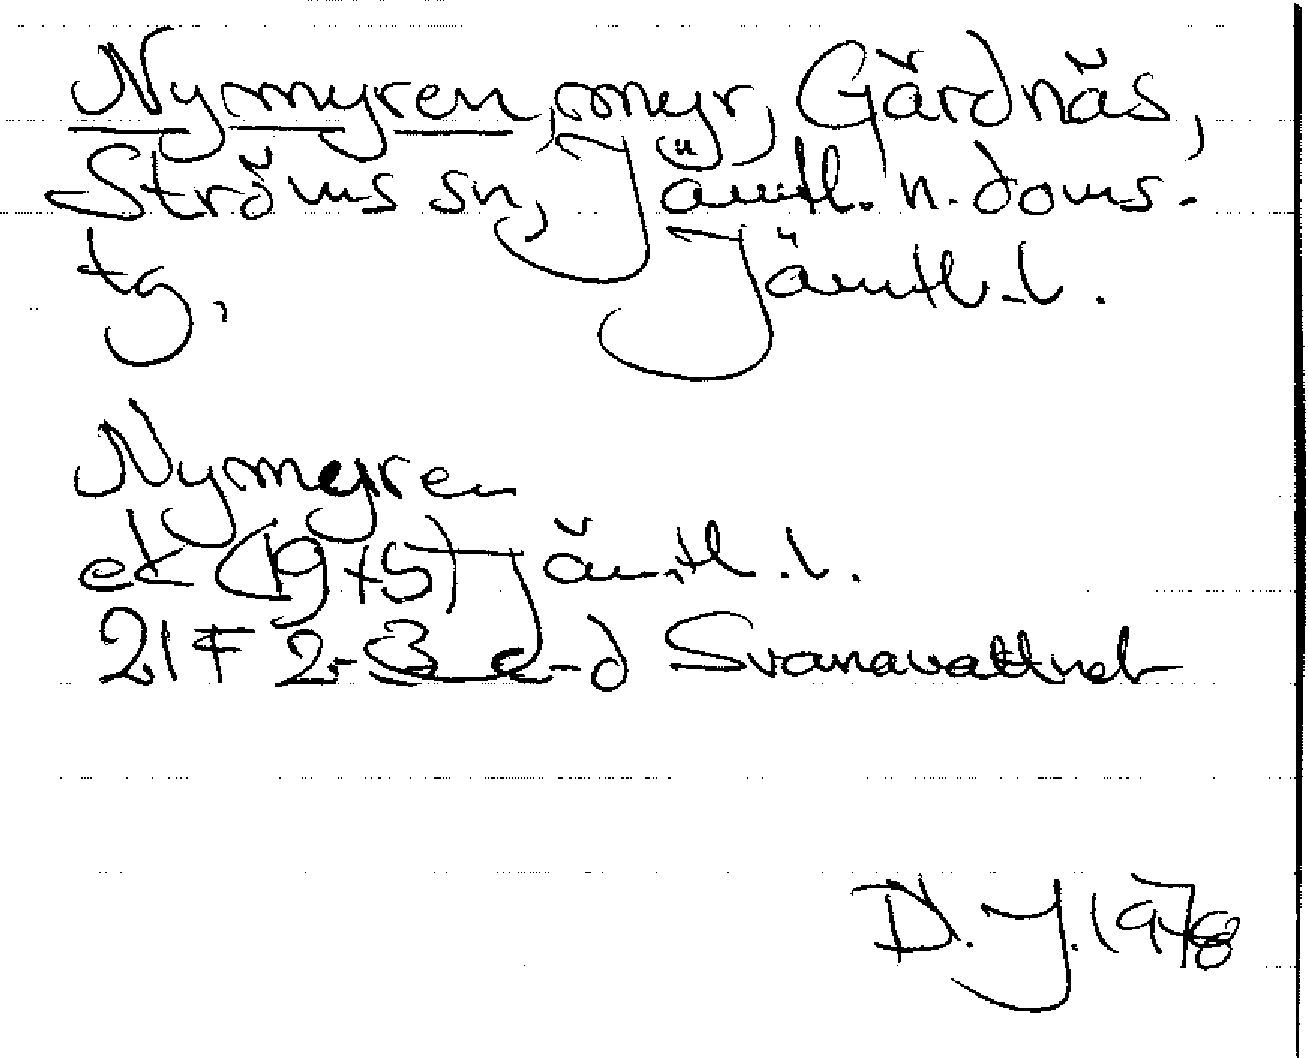 Nymyren, myr, Gärdnäs,
Ströms sn, Jämtl. n. doms.
tg, Jämtl. l.
Nymyren
ek (1975) Jämtl. l.
21F 2-3 c-d Svanavattnet
D. J. 1978